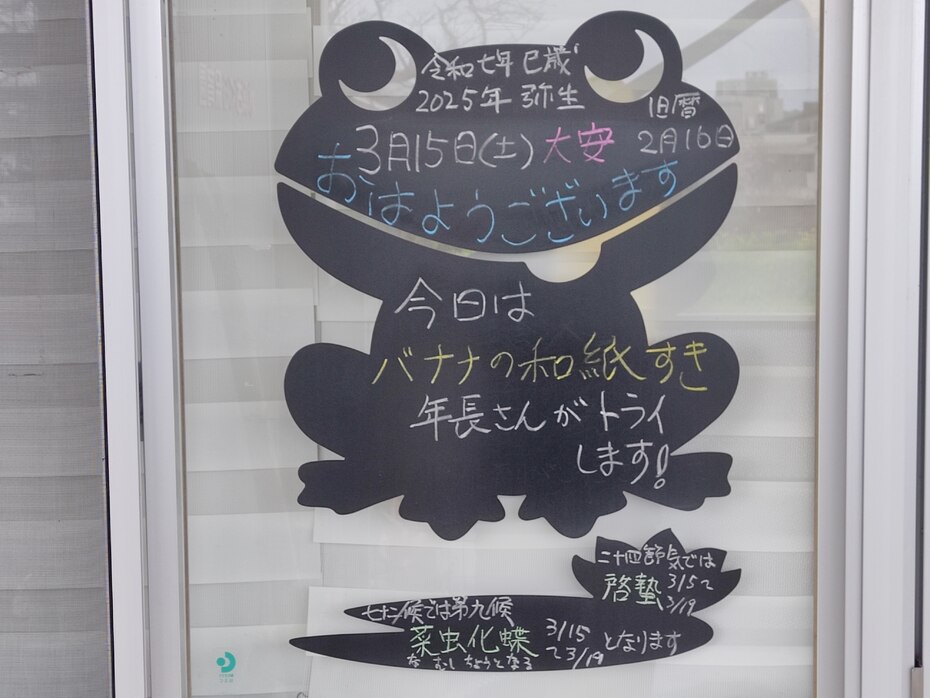 令和七年 巳歳
2025年 弥生
3月15日(土) 大安
旧暦
2月16日
おはようございます
今日は
バナナの和紙すき
年長さんがトライ
します!
二十四節気では
啓蟄 3/5~
3/19
七十二候では第九候
菜虫化蝶 3/15
~3/19 となります
なむしちょうとなる